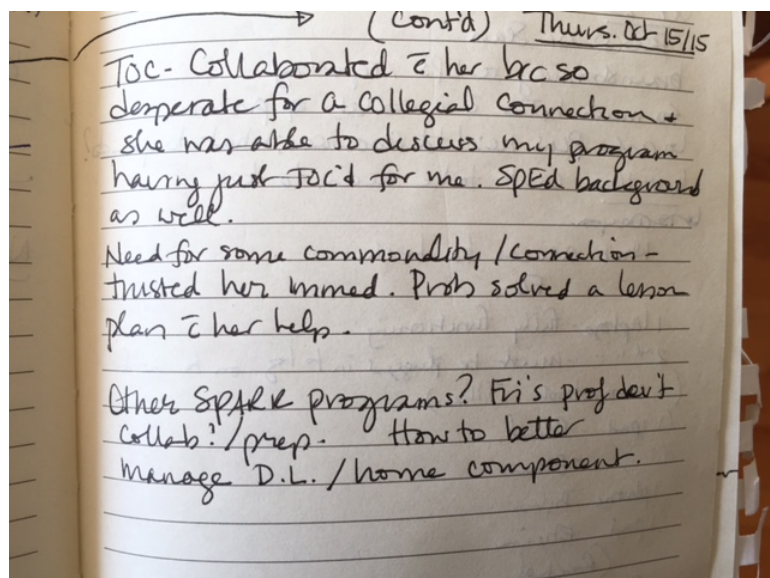 (Cont'd) Thurs. Oct 15/15
TOC - Collaborated c̄ her b/c so
desperate for a collegial connection +
she was able to discuss my program
having just TOC'd for me. SpEd background
as well.
Need for some commonality / connection -
trusted her immed. Prob solved a lesson
plan c̄ her help.
Other SPARK programs? Fri's prof dev't
collab?/prep. How to better
manage D.L./home component.